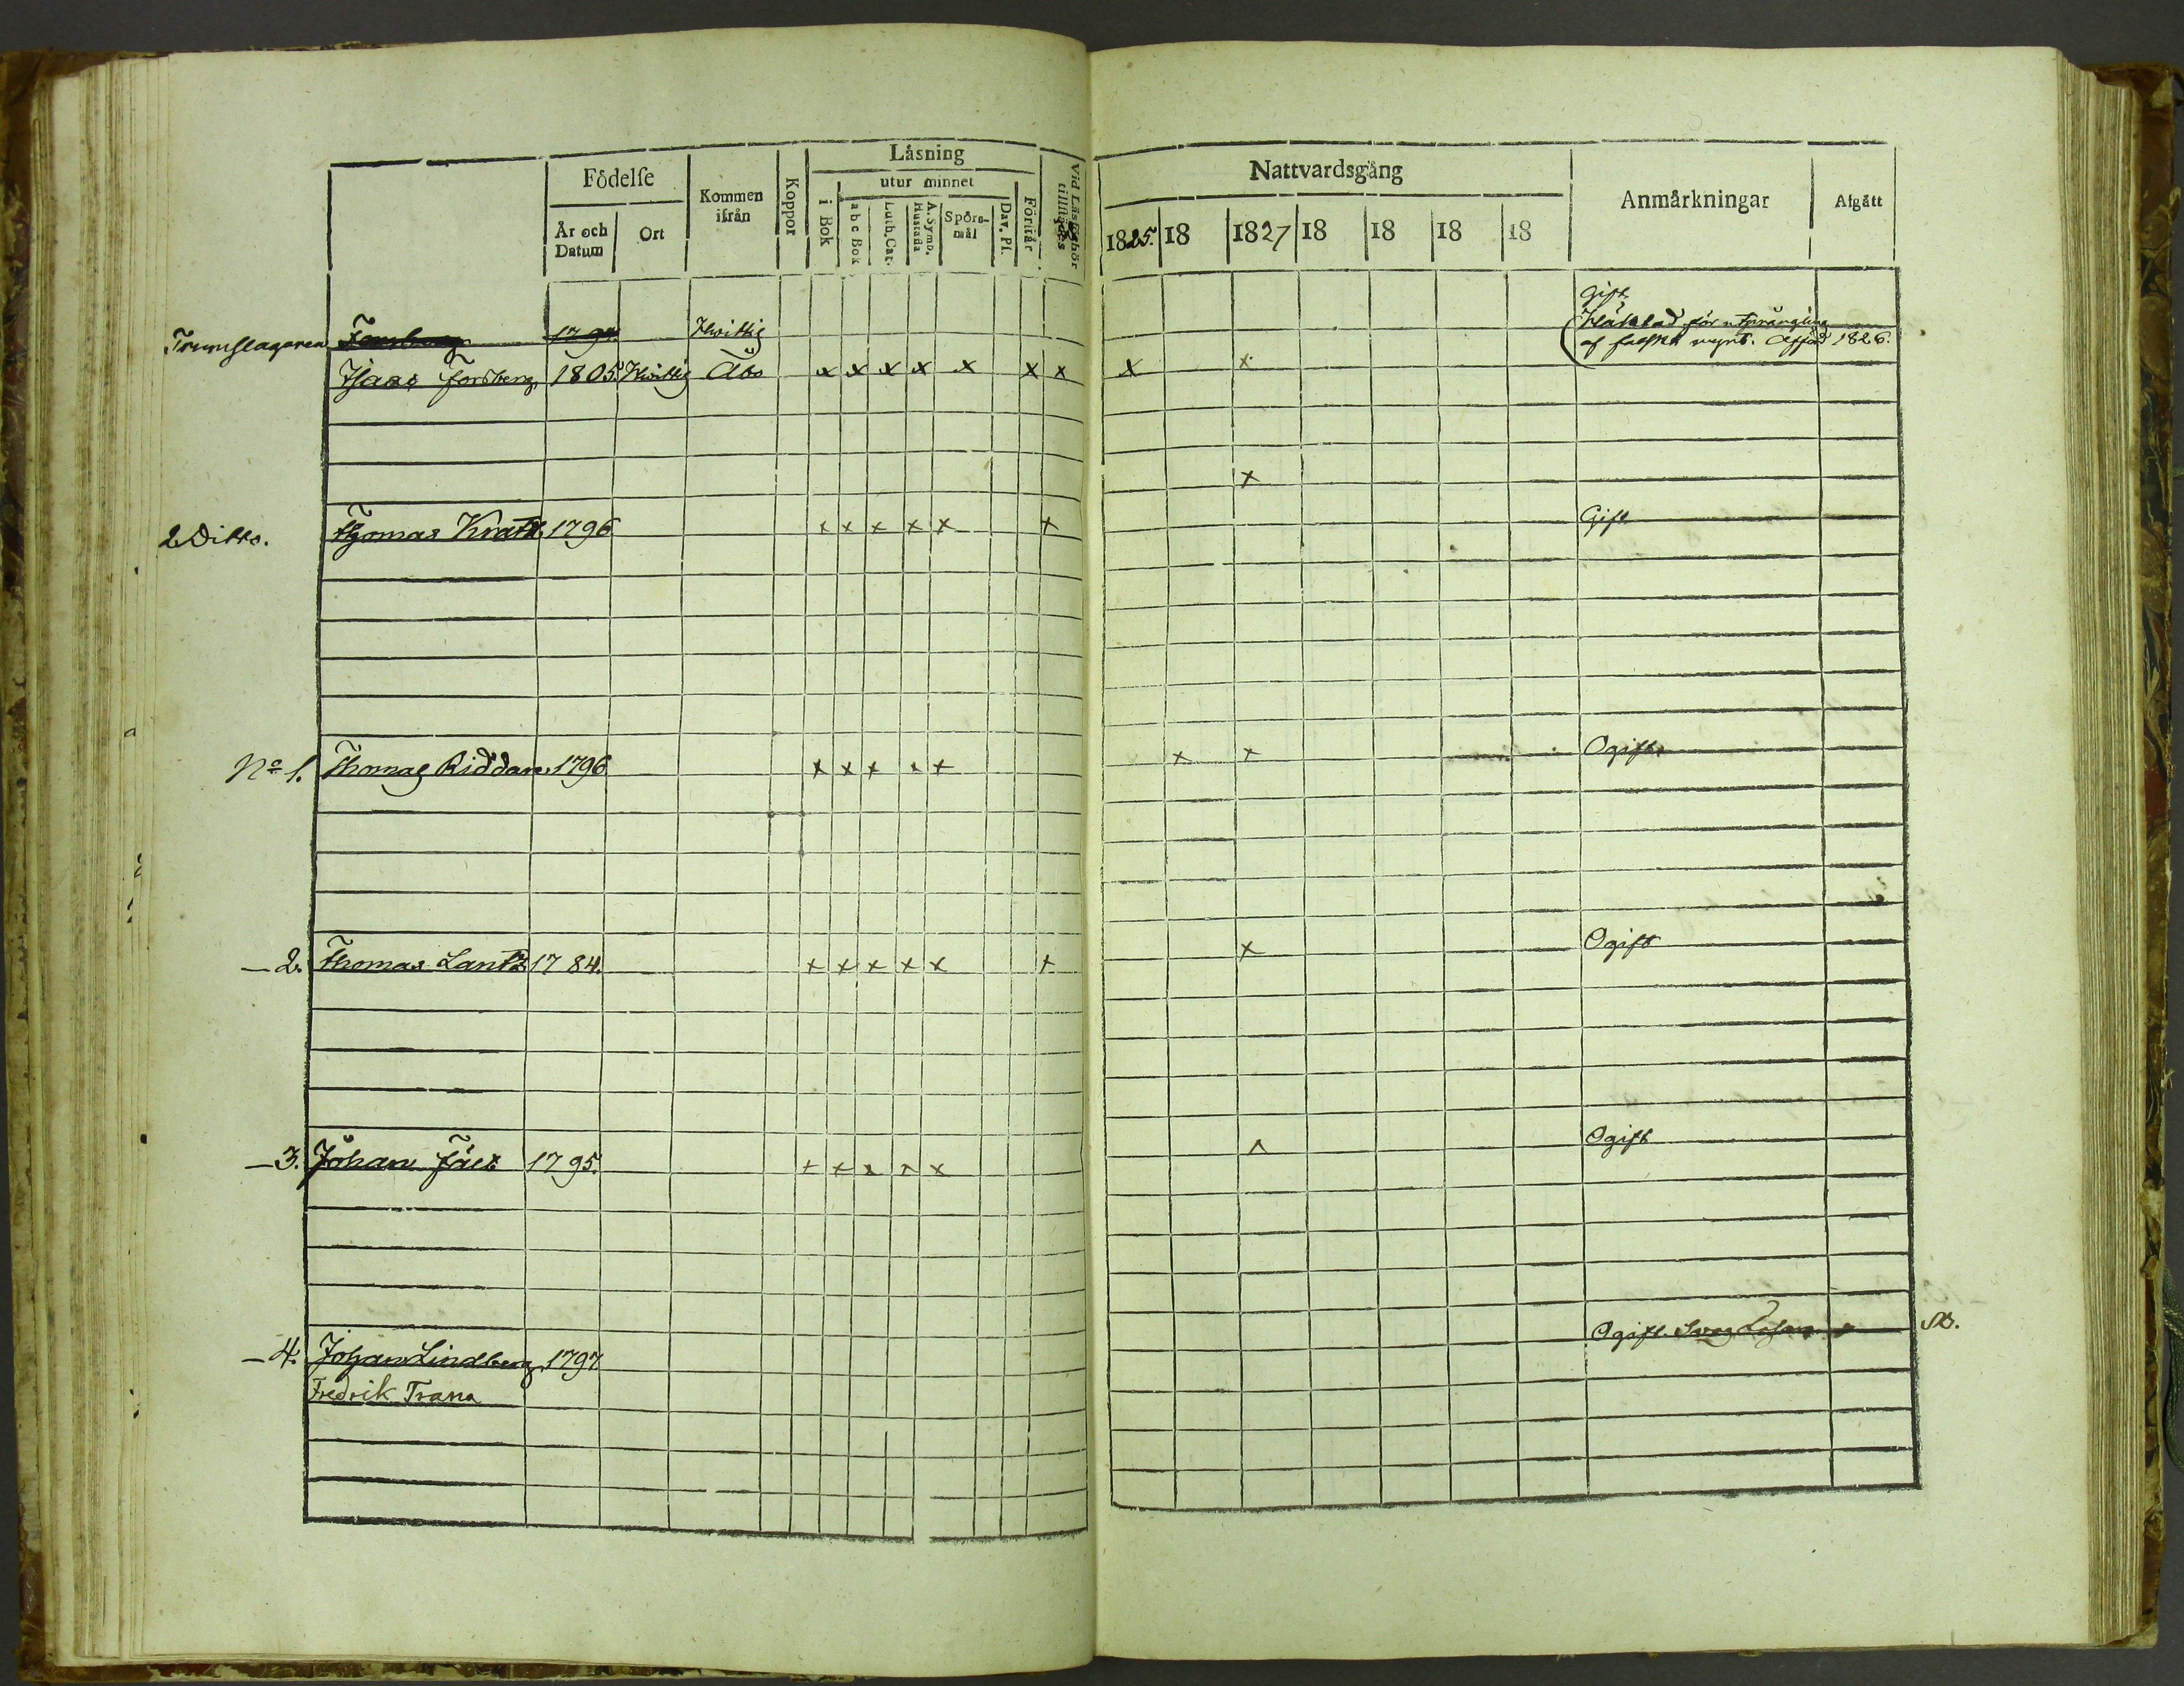 Födelse
Kommen ifrån
Koppor
Läsning
utur minnet
Vid Läsförhör tillstädes
Nattvardsgång
Anmärkningar
Afgått
År och Datum
Ort
i Bok
a b c Bok
Luth. Cat.
A. Symb. Hustafla
Spörs-mål
Dav. Ps.
Förstår
1825. 18 1827 18 18 18 18
Gift
Trumslagaren 1794 Hwittis Häktad för utprångling
af falskt mynt. Afförd 1826.
Isaac Forsberg 1805. Hwittis Åbo x x x x x x x x x
x
2 Ditto. Thomas Kratz 1796 x x x x x x Gift
No 1. Thomas Riddare 1796 x x x x x x x Ogift
— 2. Thomas Lantz 1784. x x x x x x x Ogift
— 3. Johan Fält 1795. x x x x x x Ogift
— 4. Johan Lindberg 1797 Ogift.
Fredrik Trana